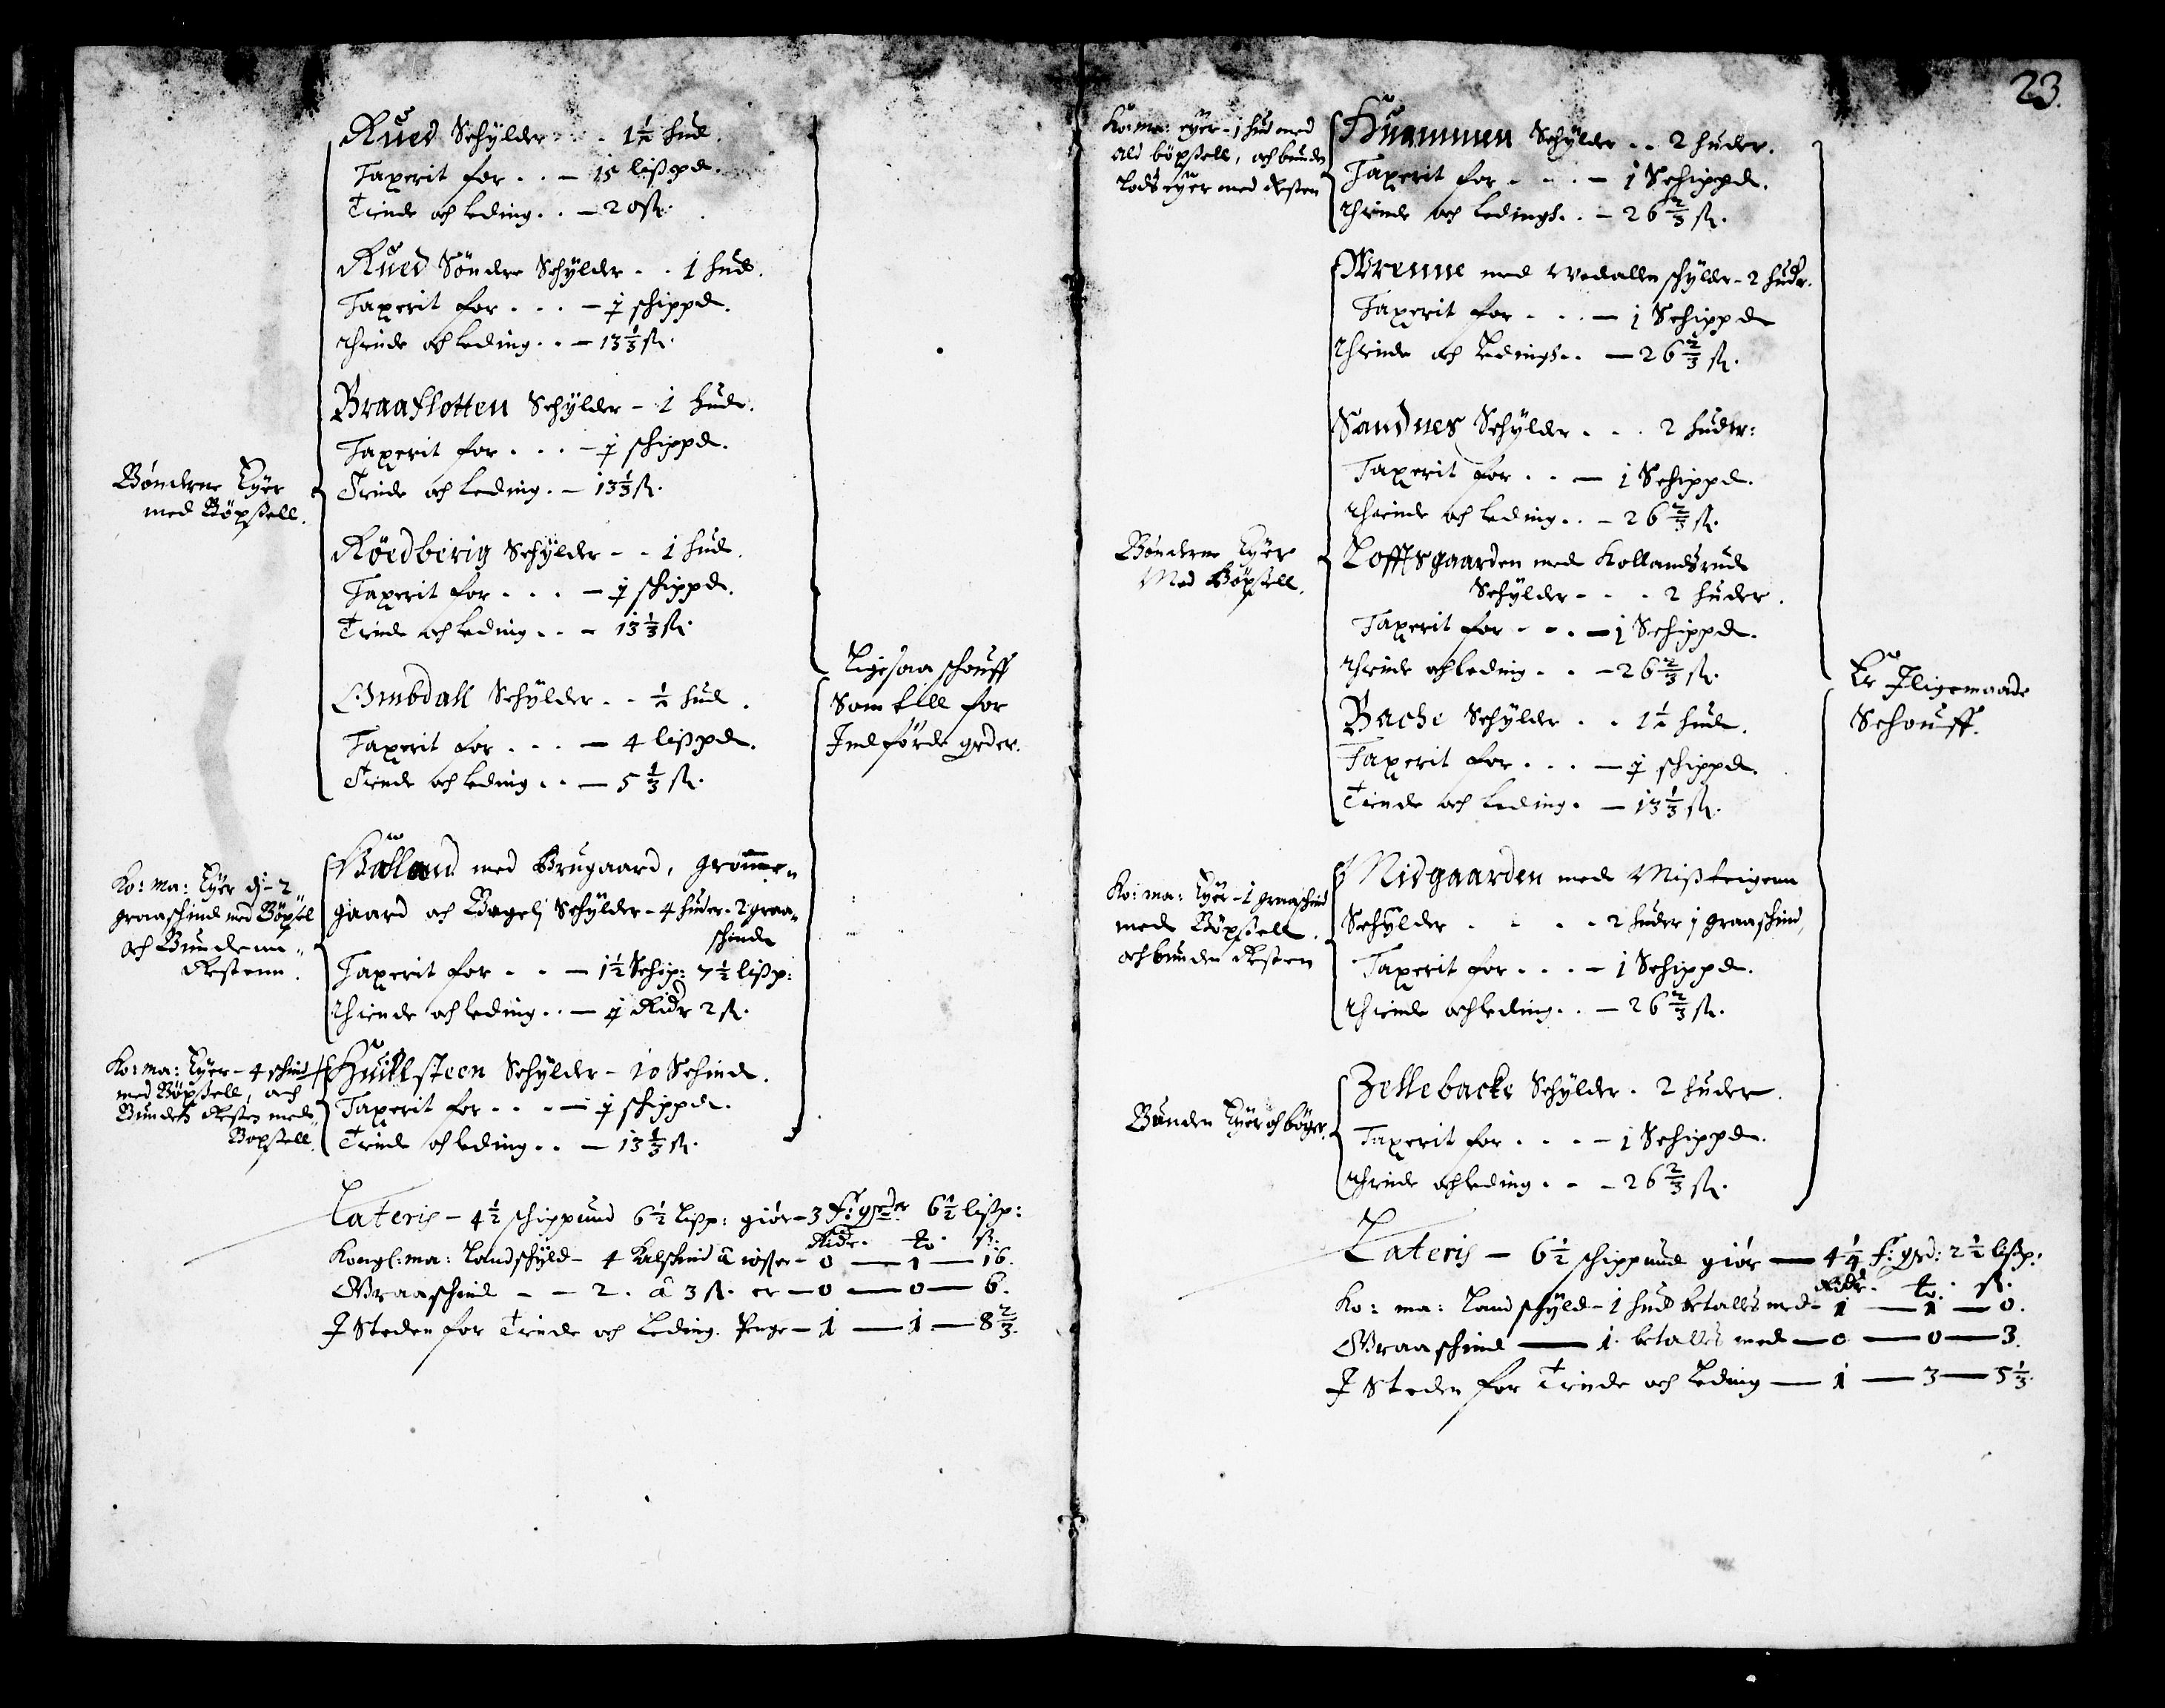 Rued Schylder - - - 1½ hud.
Taxerit for - - — 15 lißpd.
Tiende och leding - - — 20 ß.
Rued Söndre Schylder - - 1 hud.
Taxerit for - - - — ½ schippd.
Thiende och leding - - — 13⅓ ß.
Braaflotten Schylder — 1 hude.
Taxerit for - - - — ½ schippd.
Bönderne Eyer
med Böxsell.
Tiende och leding - — 13⅓ ß.
Röedberig Schylder - - 1 hud.
Taxerit for - - - — ½ schippd.
Tiende och leding - - — 13⅓ ß.
Schylder - - ½ hud.
Taxerit for - - - — 4 lißpd.
Tiende och leding - - — 5⅓ ß.
Ligesaa schouff
Som till for
Indförde grder.
Ko: Ma: Eyer dj - 2
graaschind med Böxsel
och Bundenn
Resten.
med Brugaard, Grönne-
gaard och Bagelj Schylder - 4 huder - 2 graa-
schinde
Taxerit for - - — 1½ Schip: 7½ lißp:
Thiende och leding - - — ½ Ridr 2 ß.
Ko: ma: Eyer - 4 schind
med Böxsell, och
Bunden Resten med
Böxsell.
Huillsteen Schylder - 10 Schind.
Taxerit for - - - — ½ schippd.
Tiende och leding - - — 13⅓ ß.
Lateris — 4½ schippund 6½ lißp: giör — 3 f: grder 6½ lißp:
Ridr. to. ß.
Kongl: ma: Landschyld - 4 Kalfskind â - 0 — 1 — 16.
Graaschind - - 2. â 3 ß. er — 0 — 0 — 6.
J Steden for Tiende och Leding. Penge — 1 — 1 — 8⅔.
23.
Ko: ma: eyer - 1 hud med
all böxsell, och bunden
eyer med Resten
Huammen Schylder - - 2 huder.
Taxerit for - - - — 1 Schippd.
Thiende och Leding - - — 26⅔ ß.
Wrenne med Medallen schylder - 2 huder.
Taxerit for - - - — 1 Schippd
Thiende och Leding - - — 26⅔ ß.
Sandnes Schylder - - - 2 huder:
Taxerit for - - — 1 Schippd.
Thiende och leding - - — 26⅔ ß.
Bönderne Eyer
Med Böxsell.
Lofftsgaarden med Kollandsrud
Schylder - - - 2 huder.
Taxerit for - - - — 1 Schippd.
Thiende och leding - - — 26⅔ ß.
Bache Schylder - - 1½ hud.
Taxerit for - - - — ½ schippd.
Tiende och leding - — 13⅓ ß.
Er Jligemaade
Schouff.
Ko: ma: Eyer - 1 graaschind
med Böxsell
och bunden Resten
Nidgaarden med Mißteigenn
Schylder - - - - 2 huder 1 graaschind,
Taxerit for - - - — 1 Schippd.
Thiende och leding - - — 26⅔ ß.
Bunden Eyer och böger.
Zellebacke Schylder - 2 huder.
Taxerit for - - - — 1 Schippd.
Thiende och leding - - — 26⅔ ß.
Lateris — 6½ schippund giör — 4¼ f: grd: 2½ lißp:
Ridr. to. ß.
Ko: ma: Landschyld - 1 hud betalles med — 1 — 1 — 0.
Graaschind — 1. betalles med — 0 — 0 — 3.
J Steden for Tiende och Leding — 1 — 3 — 5⅓.